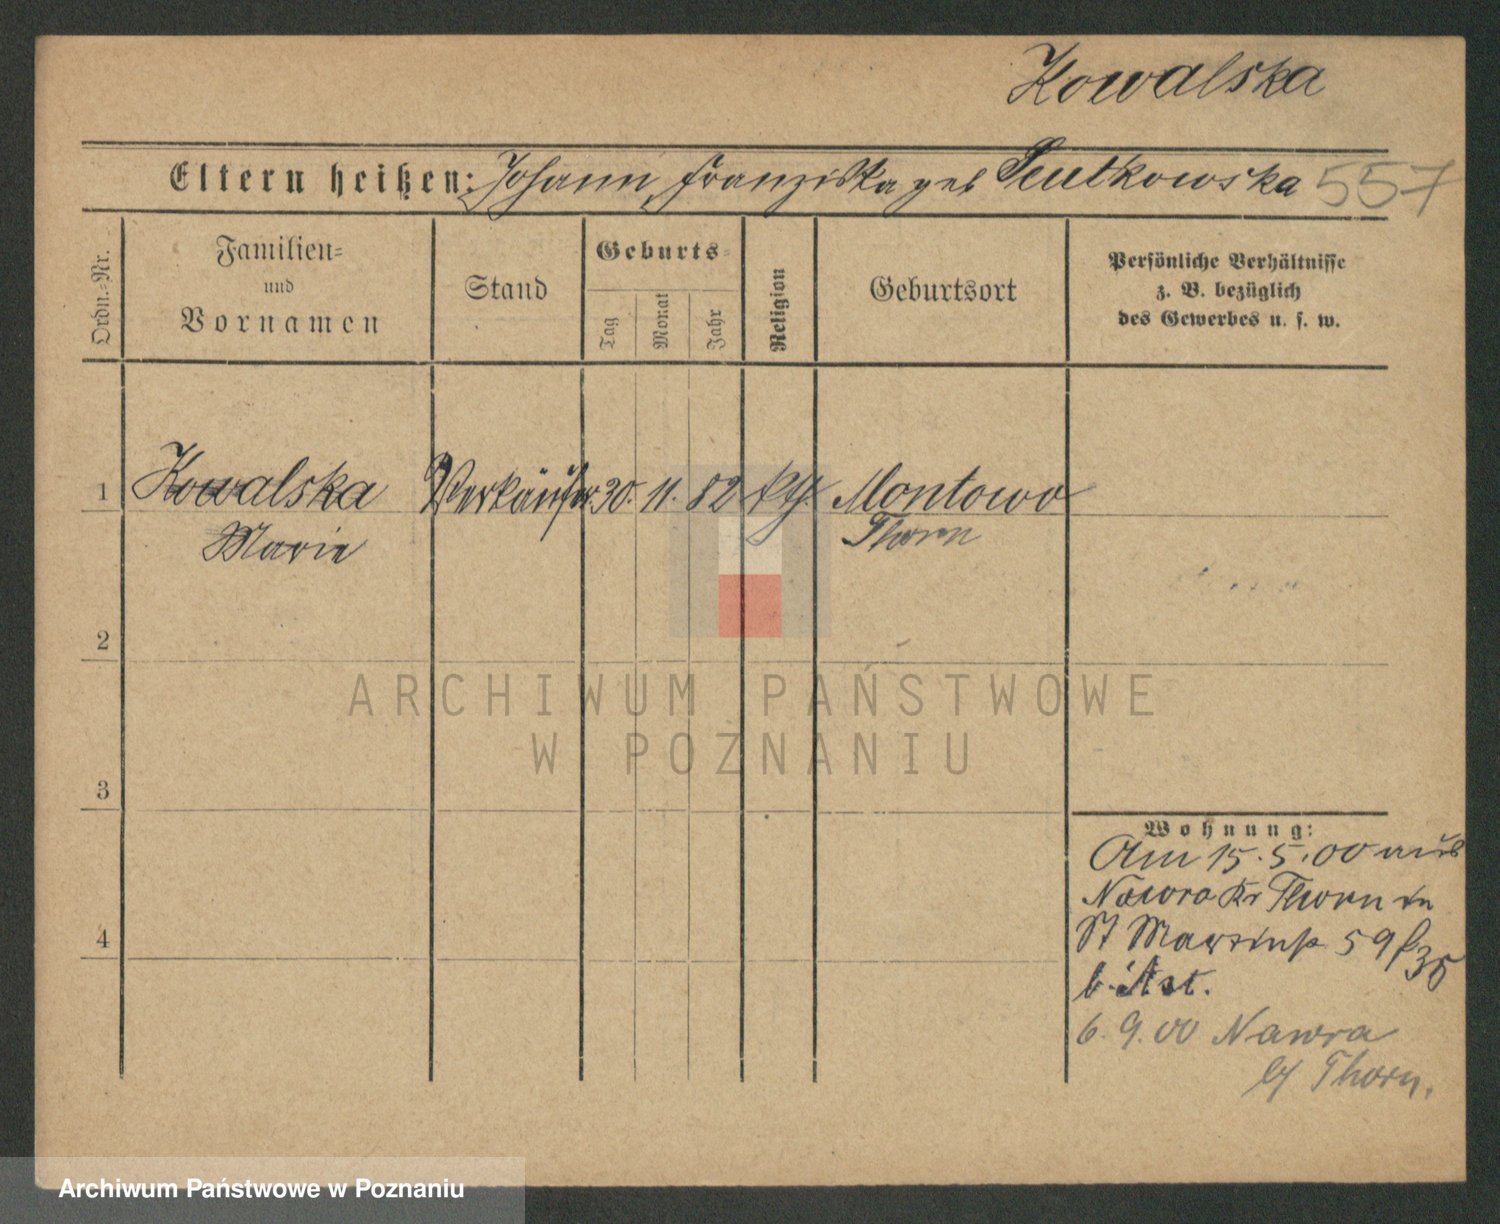 Kowalska
Eltern heißen: Johann, Franziska geb Sentkowska 557
Ordn.=Nr.
Familien=
und
Vornamen
Stand
Geburts=
Tag
Monat
Jahr
Religion
Geburtsort
Persönliche Verhältnisse
z. B. bezüglich
des Gewerbes u. s. w.
1 Kowalska Verkäufer. 30. 11. 82 kth. Montowo
Marie Thorn
2
ARCHIWUM PAŃSTWOWE
W POZNANIU
3
Wohnung:
Am 15.5.00 aus
Nawra Kr Thorn in
4
St Martinstr 59
b.
6.9.00 Nawra
b/ Thorn.
Archiwum Państwowe w Poznaniu